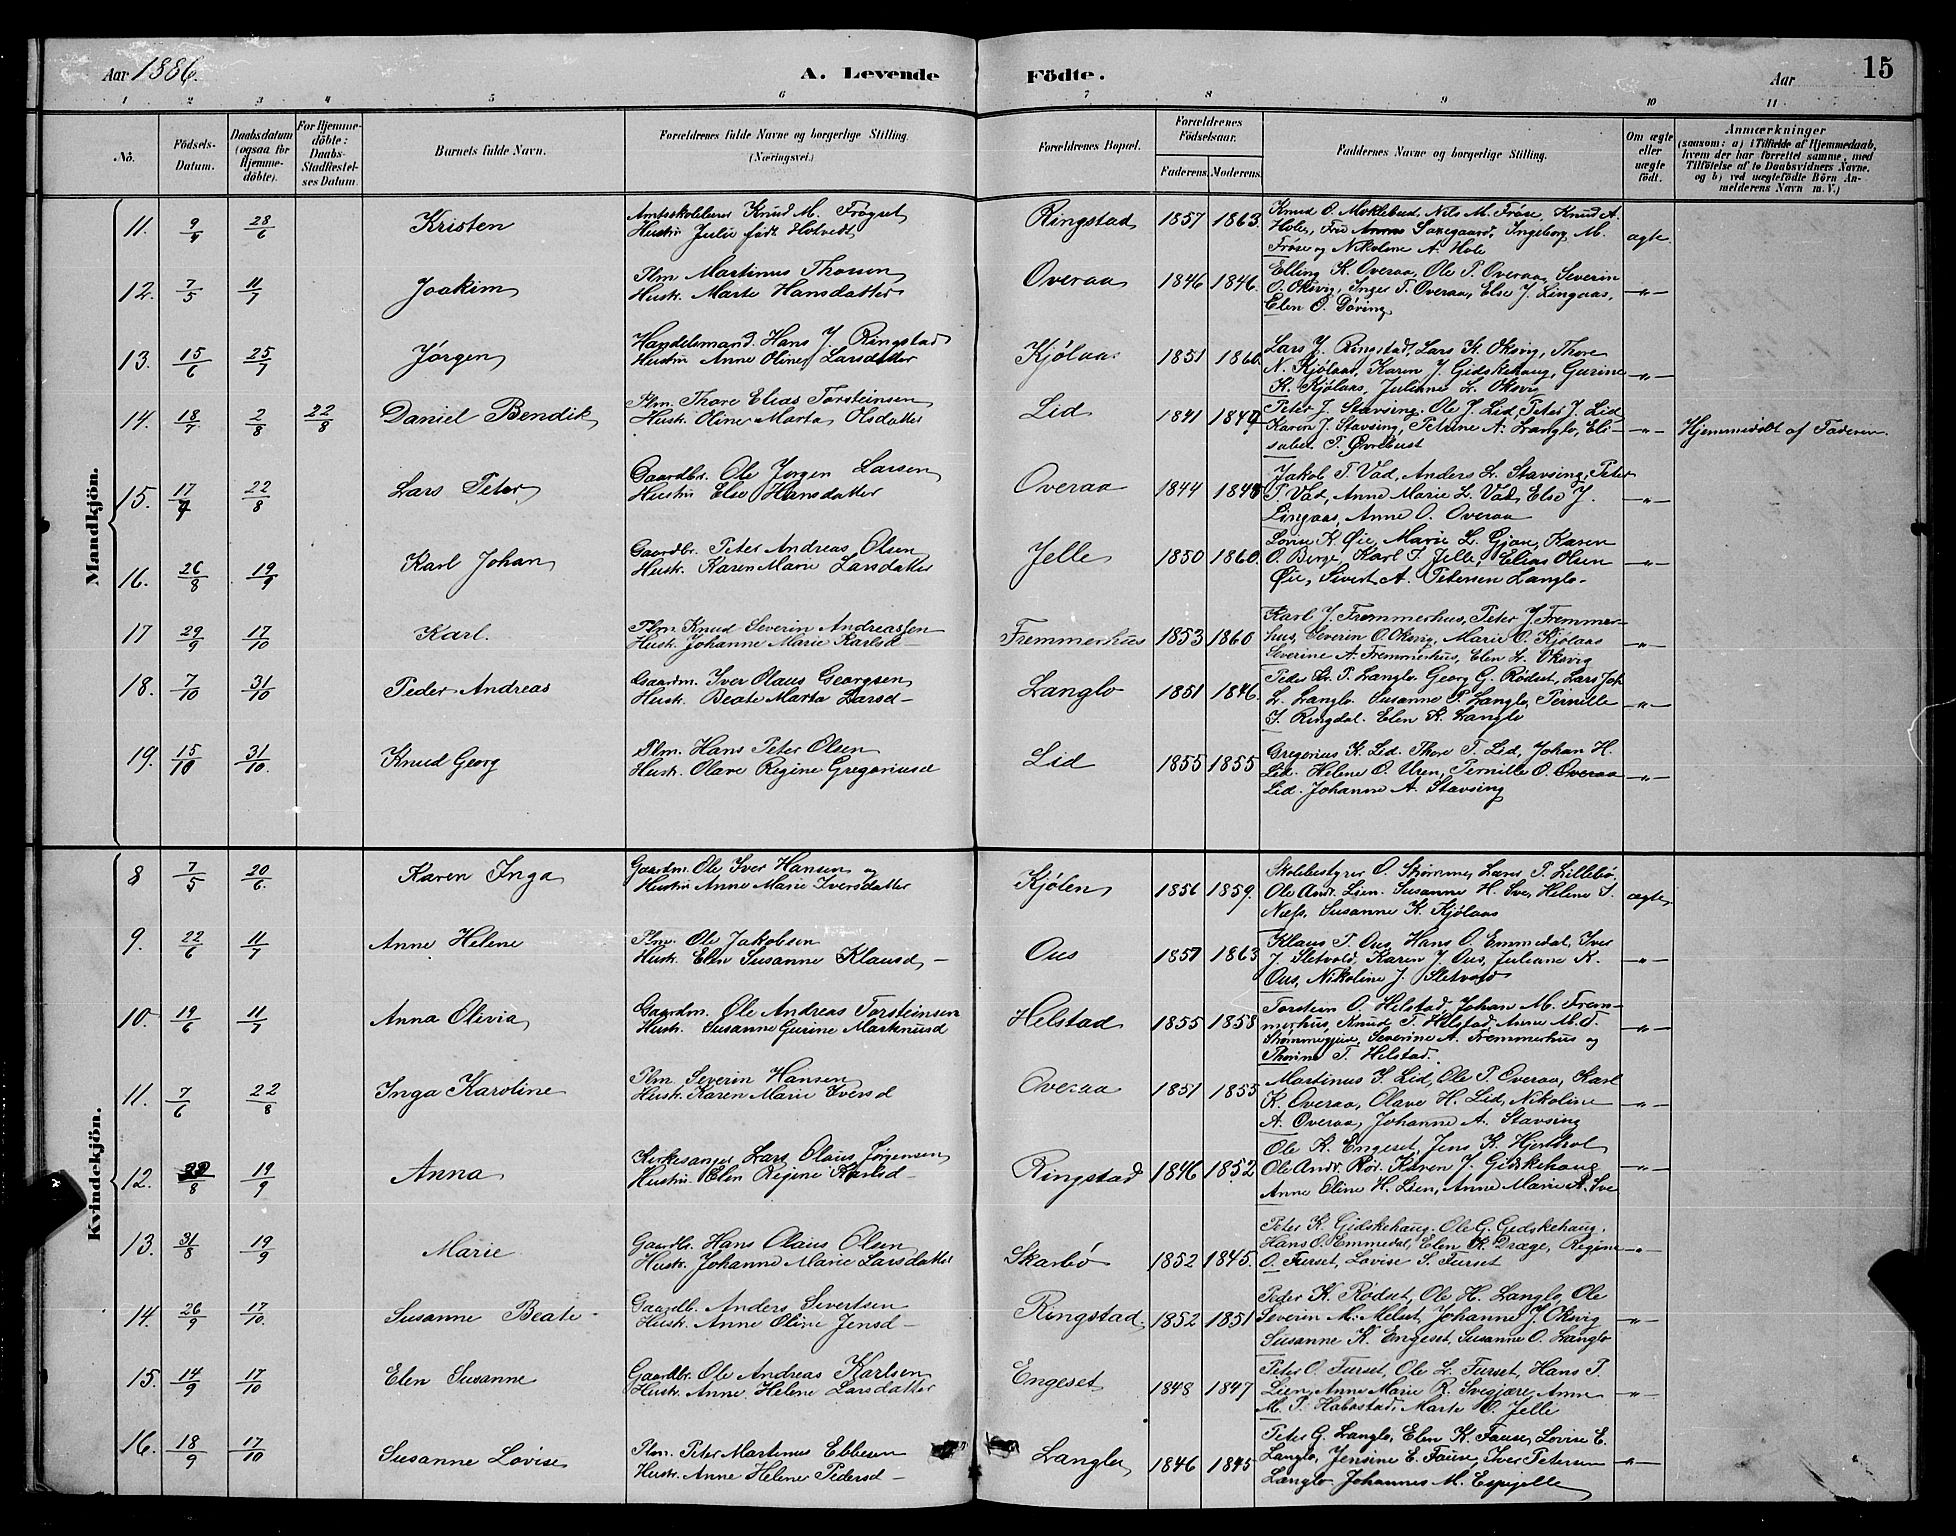 Aar 1886. A. Levende Födte. Aar 15
1 2 3 4 5 6 7 8 9 10 11
No.
Födsels-
Datum.
Daabsdatum
(ogsaa for
Hjemme-
döbte).
For Hjemme-
döbte:
Daabs-
Stadfæstel-
ses Datum.
Barnets fulde Navn.
Forældrenes fulde Navne og borgerlige Stilling.
(Næringsvei.)
Forældrenes Bopæl.
Forældrenes
Födselsaar.
Faderens. Moderens.
Faddernes Navne og borgerlige Stilling.
Om ægte
eller
uægte
födt.
Anmærkninger
(saasom: a) i Tilfælde af Hjemmedaab,
hvem der har forrettet samme, med
Tilföielse af to Daabsvidners Navne.
og b) ved uægtefödte Börn An-
melderens Navn m. V.)
Mandkjön.
11. 9/4 28/6 Kristen
Amtsskolelærer Knud M. Frøyset
Hustru Julie født Hotvedt
Ringstad 1857 1863.
Knud O. Moklebust, Nils M. Frøse, Knud A.
Hole, Fru Saxegaard, Ingeborg M.
Frøse og Nikoline A. Hole
ægte
12. 7/5 11/7 Joakim
Plm Martinus Thosen
Hustr. Marte Hansdatter
Overaa 1846 1846.
Elling K. Overaa, Ole P. Overaa, Severin
O. Oksvig, Inger T. Overaa, Else J. Lingaas,
Elen O. Døving
-"-
13. 15/6 25/7 Jørgen
Handelsmand. Hans J. Ringstad
Hustru Anne Oline Larsdatter
Kjølaas 1851 1860.
Lars J. Ringstad, Lars K. Oksvig, Thore
N. Kjølaas, Karen J. Gidskehaug, Gurine
K. Kjølaas, Juliane L. Oksvig
-"-
14. 18/7 2/8 22/8 Daniel Bendik
Plm. Thore Elias Torsteinsen
Hustr. Oline Marta Olsdatter
Lid 1841 1847
Peter J. Stavsing. Ole J. Lid, Peter J. Lid
Karen J. Stavsing, Petrine A. Langlo, Eli-
sabet P. Øvrebust
-"- Hjemmedøbt af Faderen.
15. 17/7 22/8 Lars Peter
Gaardbr. Ole Jørgen Larsen
Hustru Else Hansdatter
Overaa 1844 1848
Jakob P. Vad, Anders L. Stavsing, Peter
P. Vad, Anne Marie L. Vad, Else J.
Lingaas, Anne O. Overaa
-"-
16. 26/8 19/9 Karl Johan
Gaardbr. Peter Andreas Olsen
Hustr. Karen Marie Larsdatter
Jelle 1850 1860.
Lovise K. Øie, Marie L. Gjøn, Karen
O. Berge, Karl J. Jelle, Elias Olsen
Øie, Sivert A. Petersen Langlo.
-"-
17 29/9 17/10 Karl.
Plm. Knud Severin Andreassen
Hustr. Johanne Marie Karlsd-
Fremmerhus 1853 1860
Karl J. Fremmerhus, Peter J. Fremmer-
hus, Severin O. Oksvig, Marie O. Kjølaas
Severine A. Fremmerhus, Elen L. Oksvig
-"-
18. 7/10 31/10 Peder Andreas
Gaardm. Iver Olaus Georgsen
Hustr. Beate Marta Larsd-
Langlo 1851 1846.
Peder L. P. Langlo, Georg G. Rødset, Lars Joh
L. Langlo. Susanne P. Langlo, Pernille
I. Ringdal. Elen K. Langlo
-"-
19. 15/10 31/10. Knud Georg
Plm. Hans Peter Olsen
Hustr. Olave Regine Gregoriusd
Lid 1855 1855
Gregorius K. Lid. Thore T. Lid, Johan H.
Lid. Helene O. Uren, Pernille O. Overaa
Lid. Johanne A. Stavsing
-"-
Kvindekjön.
8 7/5 20/6. Karen Inga
Gaardm. Ole Iver Hansen og
Hustru Anne Marie Iversdatter
Kjølen 1856 1859.
Skolebestyrer O. Strømme, Lars P. Lillebø,
Ole Andr. Lien. Susanne H. Sve, Helene S.
Næss, Susanne K. Kjølaas
ægte
9. 22/6 11/7 Anne Helene
Plm. Ole Jakobsen
Hustr. Elen Susanne Klausd-
Ous 1857 1863
Klaus P. Ous, Hans O. Emmedal, Iver
J. Sletvold, Karen J. Ous, Juliane K.
Ous, Nikoline J. Sletvold
-"-
10. 19/6 11/7 Anna Olivia
Gaardm. Ole Andreas Torsteinsen
Hustr. Susanne Gurine Martinusd
Helstad 1855 1858
Torstein O. Helstad, Johan M. Frem-
merhus, Knud T. Helstad, Anne M. T.
Strømmegjere, Severine A. Fremmerhus og
Thorine T. Helstad.
-"-
11. 7/6 22/8 Inga Karoline
Plm. Severin Hansen
Hustr. Karen Marie Iversd
Overaa 1851 1855
Martinus I. Lid, Ole P. Overaa, Karl
K. Overaa, Olave H. Lid, Nikoline
A. Overaa, Johanne A. Stavsing
-"-
12. 22/8 19/9 Anna
Kirkesanger Lars Olaus Jørgensen
Hustru Elen Regine Karlsd-
Ringstad 1846 1852
Ole K. Engeset, Jens K. Hjorthol
Ole Andr. Rør. Karen J. Gidskehaug
Anne Oline H. Lien, Anne Marie A. Sve
-"-
13. 31/8 19/9 Marie
Gaardbr. Hans Olaus Olsen
Hustr. Johanne Marie Larsdatter
Skarbø 1852 1845.
Peter K. Gidskehaug. Ole G. Gidskehaug.
Hans O. Emmedal, Elen K. Dræge, Regine
O. Furset, Lovise S. Furset
-"-
14. 26/9 17/10. Susanne Beate
Gaardb. Anders Sivertsen
Hustr. Anne Oline Jensd-
Ringstad. 1852 1851
Peder K. Rødset, Ole H. Langlo, Ole
Severin M. Melset, Johanne J. Oksvig
Susanne K. Engeset, Susanne O. Langlo
-"-
15. 14/9 17/10 Elen Susanne
Gaardbr. Ole Andreas Karlsen
Hustr. Anne Helene Larsdatter
Engeset 1848 1847
Peter O. Furset, Ole L. Furset, Hans P.
Lien, Anne Marie R. Svegjære, Anne
M. P. Habostad, Marte O. Jelle
-"-
16. 18/9 17/10 Susanne Lovise
Plm. Peter Martinus Ebbesen
Hustr. Anne Helene Pedersd-
Langlo 1846 1845
Peter G. Langlo, Elen K. Fause, Lovise E.
Langlo, Jensine E. Fause, Iver Petersen
Langlo. Johannes M. Espejelle
-"-